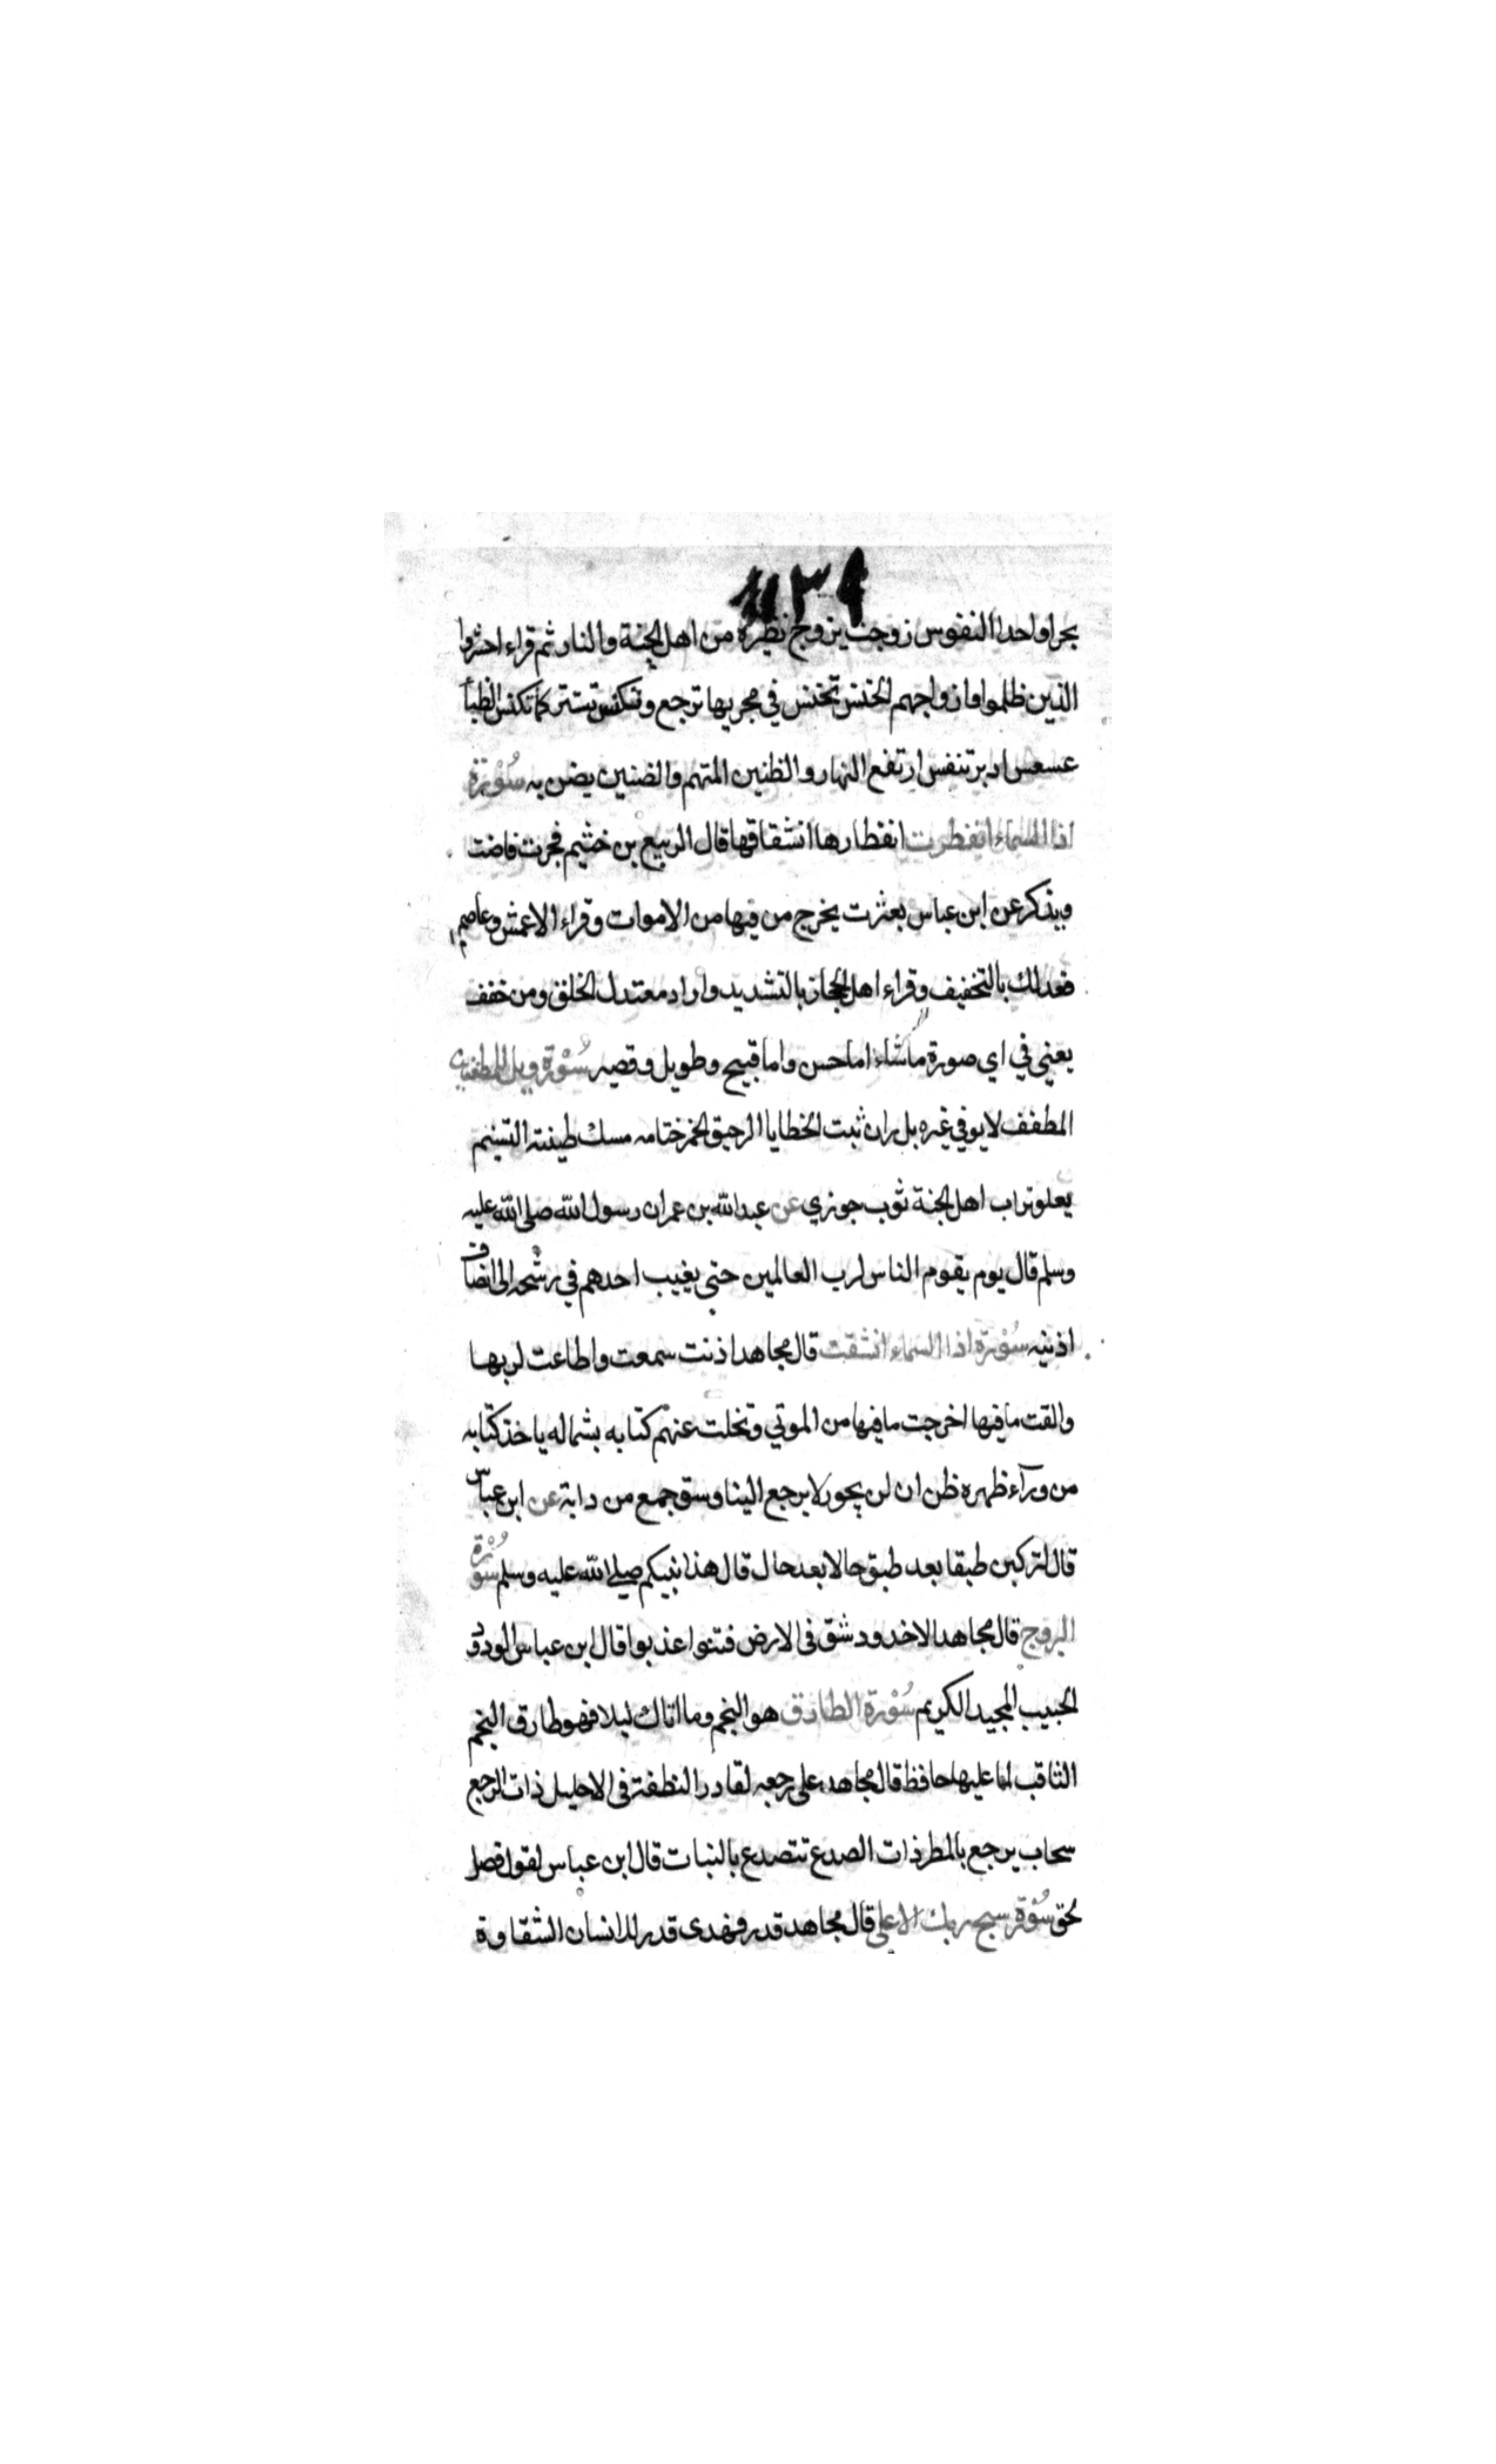 ١١٣٩
بحرا واحدا النفوس زوجت يزوج نظيره من اهل الجنة والنار ثم قراء احشروا
الذين ظلموا وازواجهم الخنس تخنس في مجريها ترجع وتكنس تستتر كما تكنس الظبأ
عسعس ادبر تنفس ارتفع النهار والظنين المتهم والضنين يضن به سورة
اذا السماء انفطرت انفطارها انشقاقها قال الربيع بن خثيم فجرت فاضت
ويذكر عن ابن عباس بعثرت يخرج من فيها من الاموات وقراء الاعمش وعاصم
فعدلك بالتخفيف وقراء اهل الحجاز بالتشديد واراد معتدل الخلق ومن خفف
يعني في اي صورة ما شاء اما حسن واما قبيح وطويل وقصير سورة ويل للمطففين
المطفف لا يوفي غيره بل ران ثبت الخطايا الرحيق الخمر ختامه مسك طينته التسنيم
يعلو تراب اهل الجنة ثوب جوزي عن عبد الله بن عمر ان رسول الله صلى الله عليه
وسلم قال يوم يقوم الناس لرب العالمين حتي يغيب احدهم في رشحه الى انصاف
اذنيه سورة اذا السماء انشقت قال مجاهد اذنت سمعت واطاعت لربها
والقت ما فيها اخرجت ما فيها من الموتي وتخلت عنهم كتابه بشماله ياخذ كتابه
من ورآء ظهره ظن ان لن يحور لا يرجع الينا وسق جمع من دابة عن ابن عباس
قال لتركبن طبقا بعد طبق حالا بعد حال قال هذا نبيكم صلي الله عليه وسلم سورة
البروج قال مجاهد الاخدود شق فى الارض فتنوا عذبوا قال ابن عباس الودود
الحبيب المجيد الكريم سورة الطارق هو النجم وما اتاك ليلا فهو طارق النجم
الثاقب لما عليها حافظ قال مجاهد على رجعه لقادر النطفة فى الاحليل ذات الرجع
سحاب يرجع بالمطر ذات الصدع تتصدع بالنبات قال ابن عباس لقول فصل
لحق سورة سبح ربك الاعلى قال مجاهد قدر فهدى قدر للانسان الشقاوة